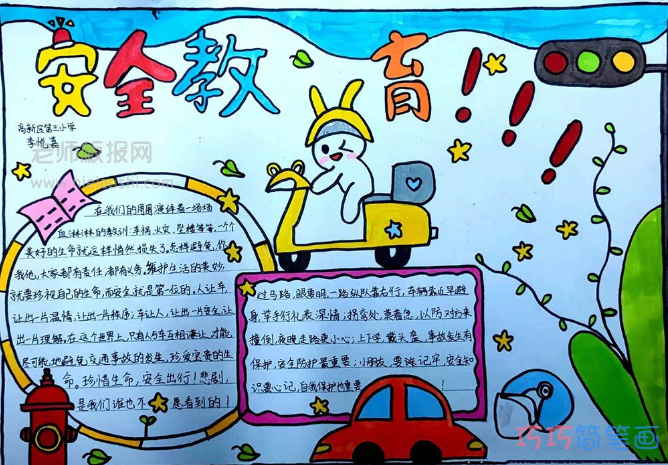 安全教育!!!
高新区第三小学
李悦嘉
老师板报网
在我们的周围演绎着一场场
血淋淋的教训:车祸,火灾,坠楼等等,一个个
美好的生命就这样悄然损失了,怎样避免,你
我他,大家都有责任,都有义务,维护生活的美妙,
就要珍视自己的生命,而安全就是第一位的,人让车,
让出一片温情,让出一片秩序;车让人,让出一片安全,让
出一片理解,在这个世界上,只有人与车互相谦让,才能,
尽可能地避免交通事故的发生,珍爱宝贵的生
命。珍惜生命,安全出行!悲剧,
是我们谁也不愿看到的!
过马路,眼要明,一路纵队靠右行,车辆靠近早避
身,举手行礼表深情;拐弯处,莫着急,以防对方来
撞倒,夜晚走路更小心;上下学,戴头盔,事故发生有
保护,安全防护最重要;小朋友,要谨记牢,安全知
识要心记,自我保护也重要!
巧巧简笔画